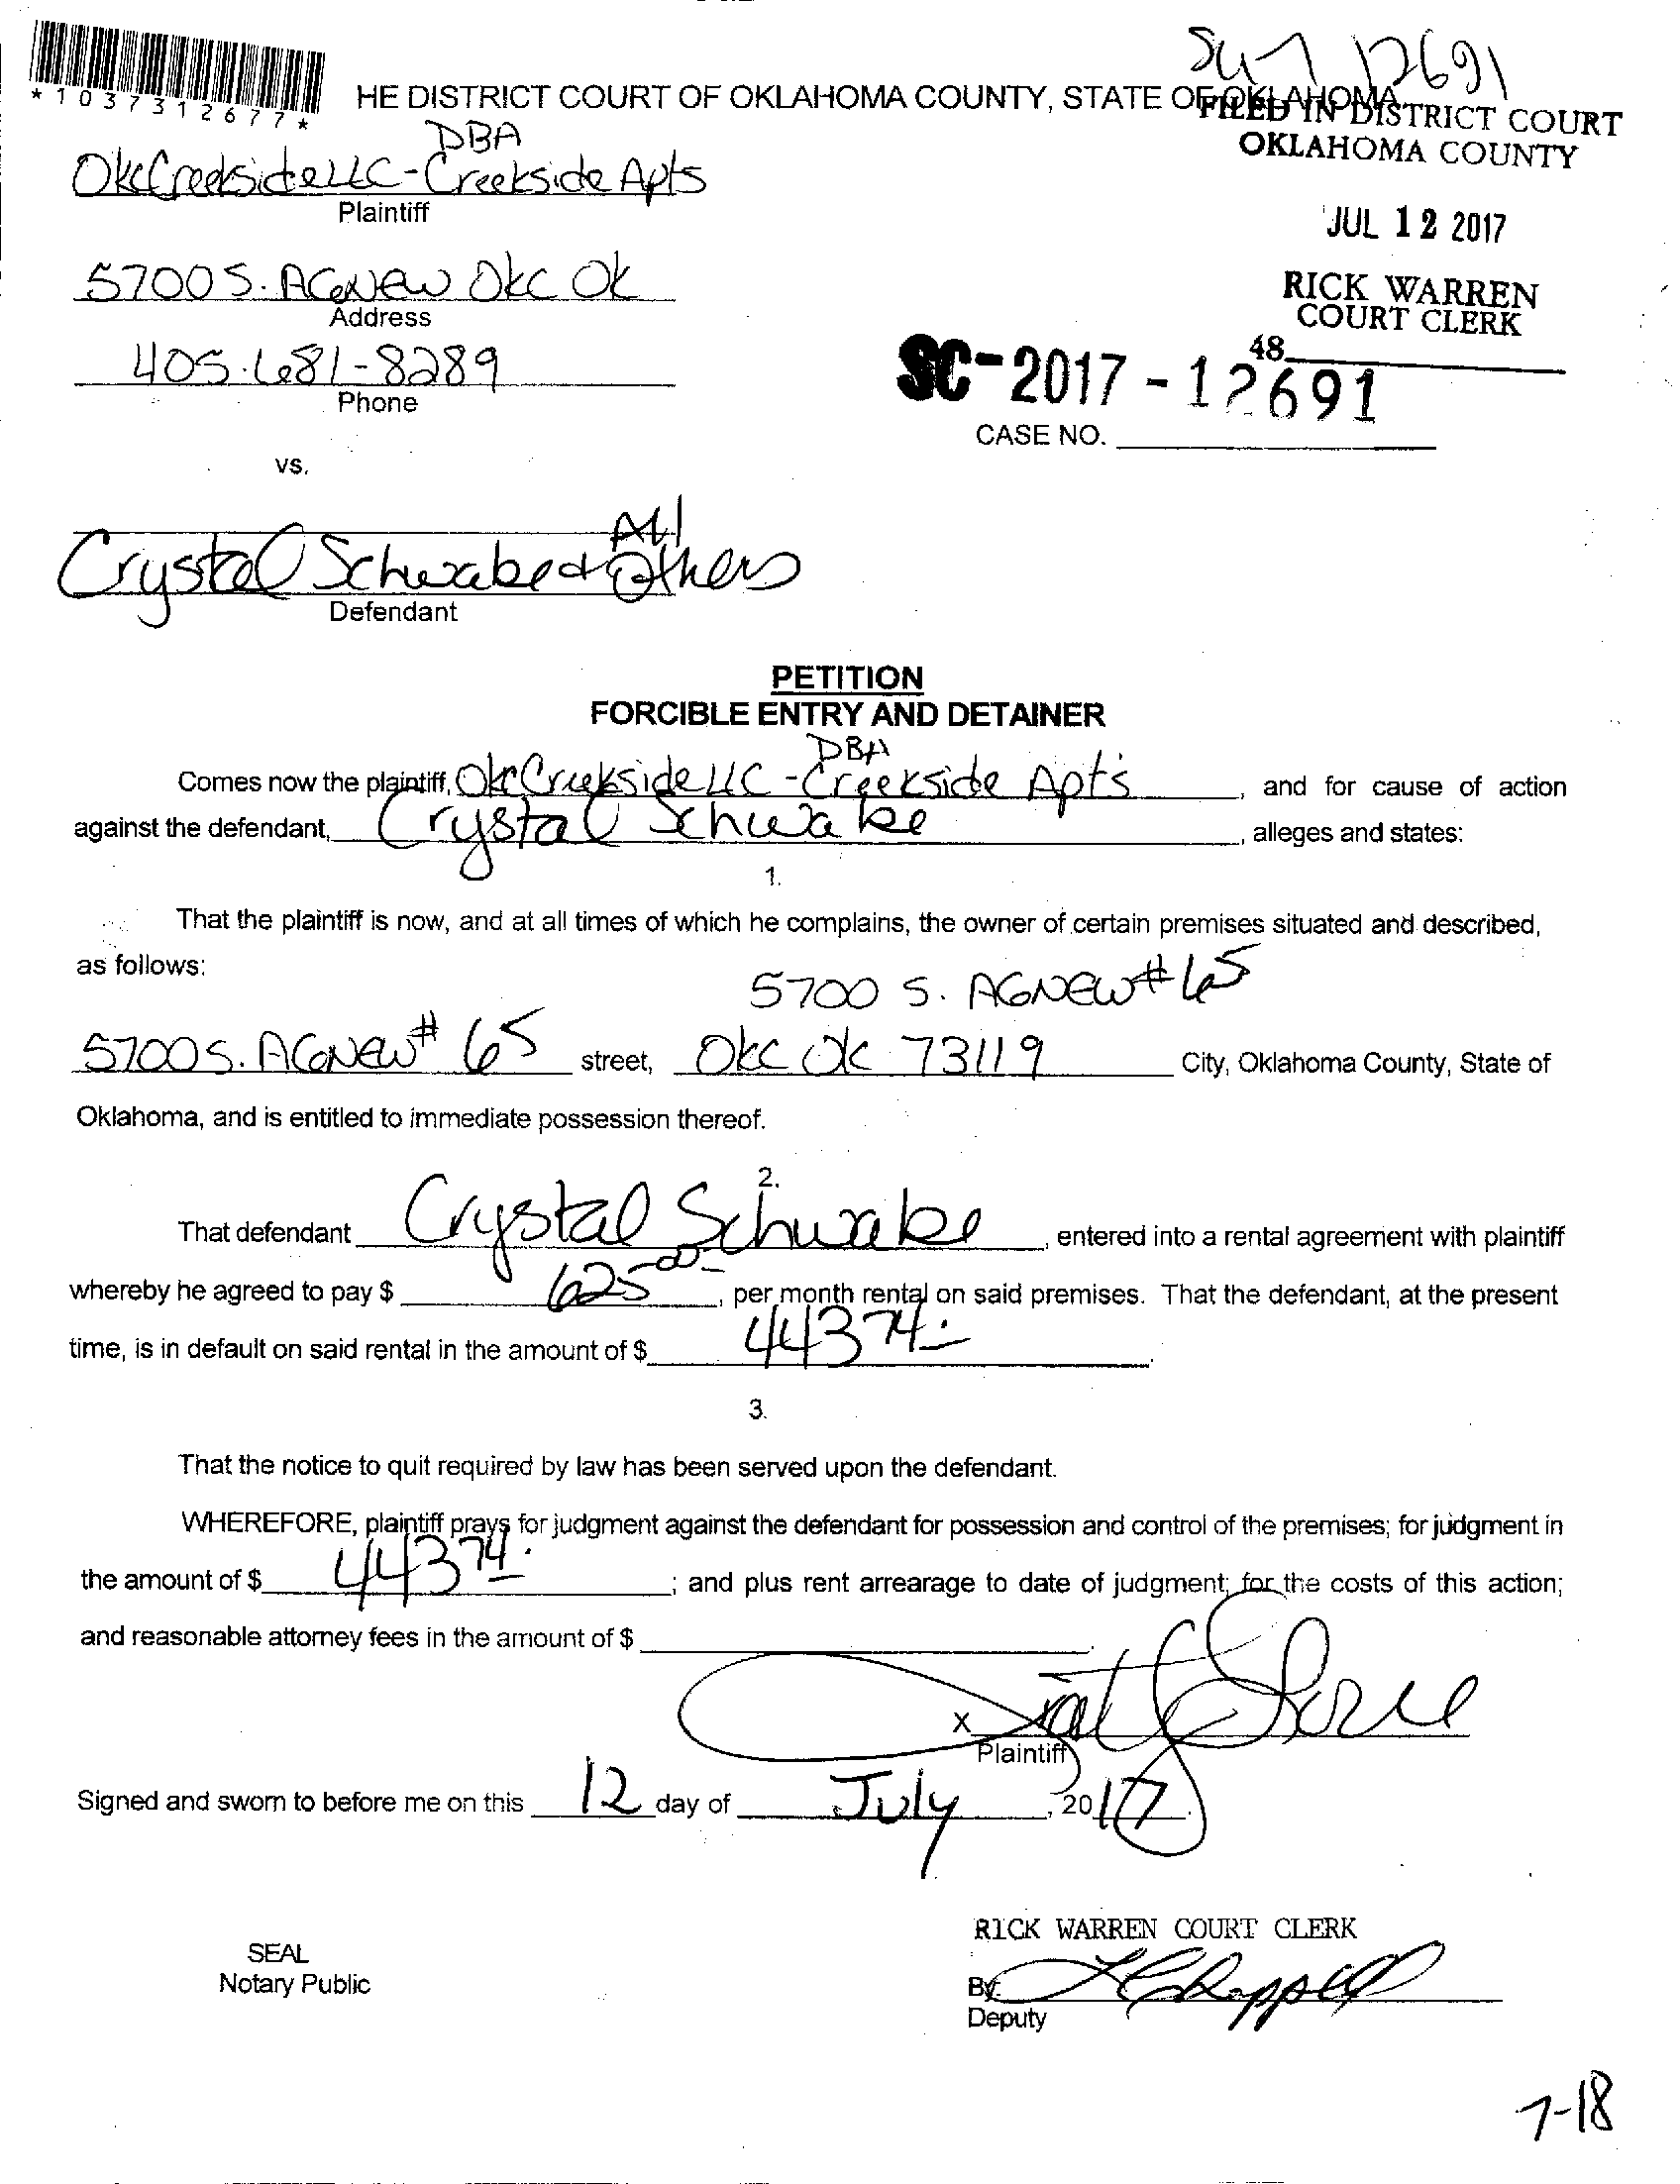 SC-17 12691
*1037312677*
HE DISTRICT COURT OF OKLAHOMA COUNTY, STATE OF OKLAHOMA
FILED IN DISTRICT COURT
OKLAHOMA COUNTY
JUL 12 2017
RICK WARREN
COURT CLERK
48
DBA
OkcCreekside LLC - Creekside Apts
Plaintiff
5700 S. AGNEW OKC OK
Address
405.681-8289
Phone
SC-2017-12691
CASE NO.
vs.
All
Crystal Schwabe & Others
Defendant
PETITION
FORCIBLE ENTRY AND DETAINER
DBA
Comes now the plaintiff, OkcCreekside LLC - Creekside Apt's, and for cause of action
against the defendant, Crystal Schwabe, alleges and states:
1.
That the plaintiff is now, and at all times of which he complains, the owner of certain premises situated and described,
as follows:
5700 S. AGNEW # 65
5700 S. AGNEW # 65 street, OKC OK 73119 City, Oklahoma County, State of
Oklahoma, and is entitled to immediate possession thereof.
2.
That defendant Crystal Schwabe, entered into a rental agreement with plaintiff
whereby he agreed to pay $ 625 00, per month rental on said premises. That the defendant, at the present
time, is in default on said rental in the amount of $ 443 74.
3.
That the notice to quit required by law has been served upon the defendant.
WHEREFORE, plaintiff prays for judgment against the defendant for possession and control of the premises; for judgment in
the amount of $ 443 74; and plus rent arrearage to date of judgment; for the costs of this action;
and reasonable attorney fees in the amount of $
X
Plaintiff
Signed and sworn to before me on this 12 day of July, 2017.
RICK WARREN COURT CLERK
SEAL
Notary Public
By:
Deputy
7-18